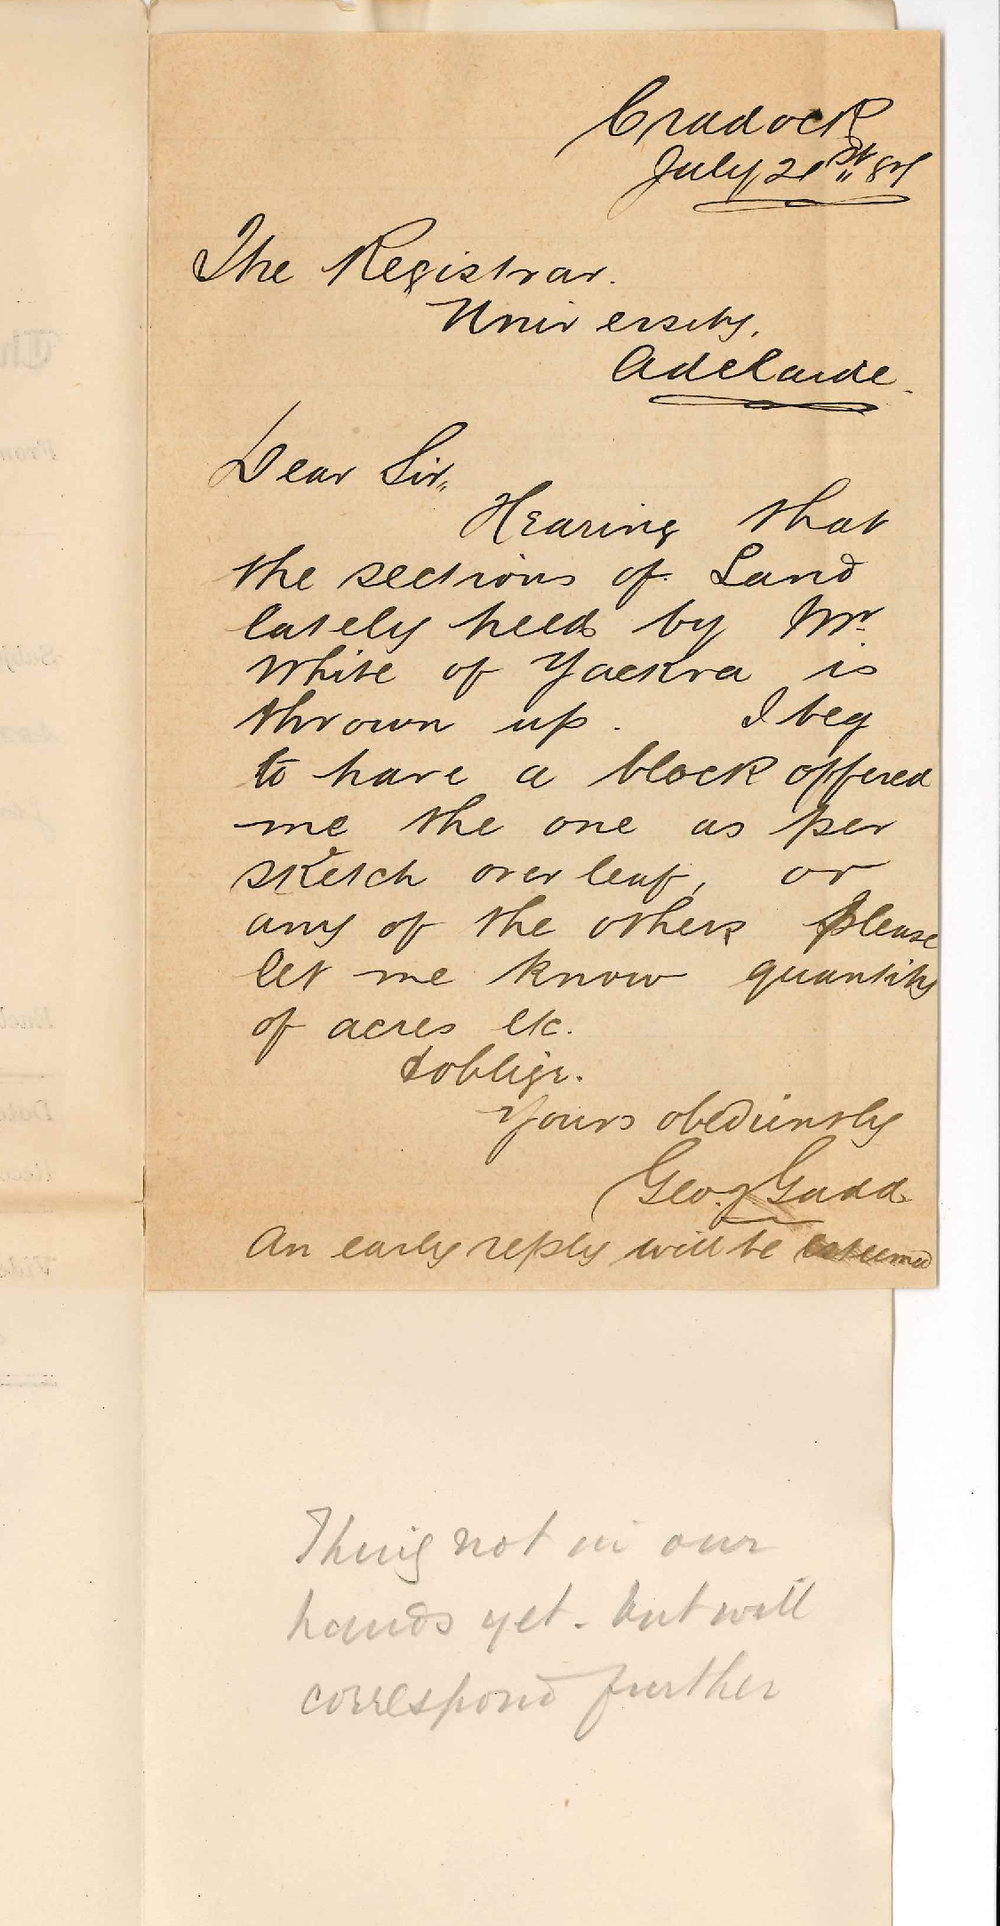 Cradock
July, 21st "87
The Registrar.
University,
Adelaide.
Dear Sir,,
Hearing that
the sections of Land
lately heeds by Mr
White of Yackra is
thrown up. I beg
to have a block offered
me the one as per
sketch over leaf, or
any of the others please
let me know quantity
of acres etc.
& oblige.
Yours obediently
Geo. Gadd
An early reply will be esteemed
Thing not in our
hands yet - but will
correspond further